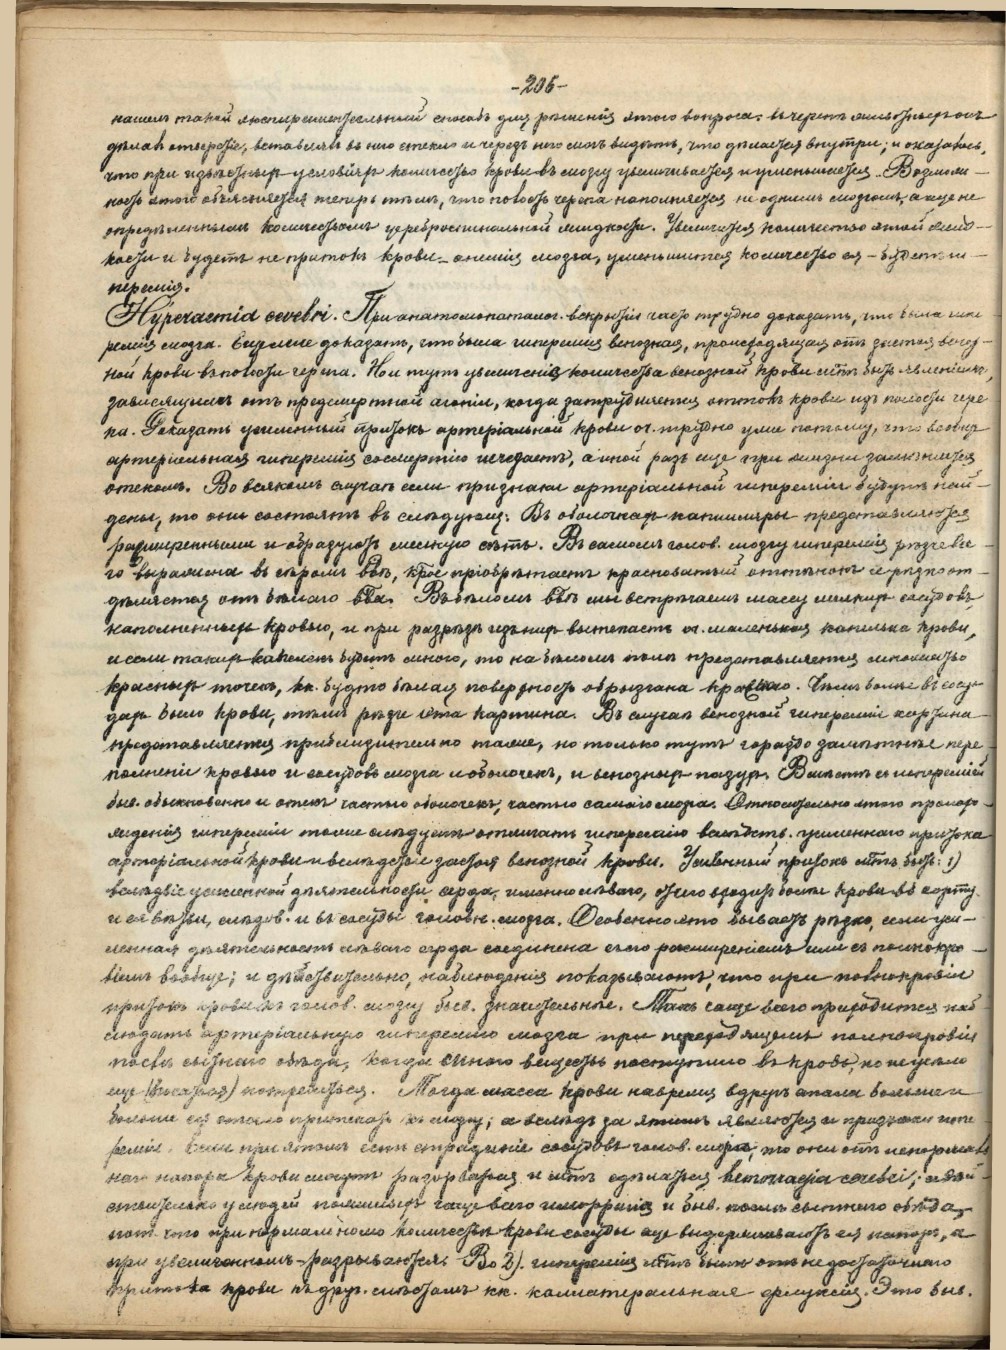 -206-
нашелъ такой экспериментальный способъ для рѣшенія этого вопроса: въ черепѣ животныхъ онъ
дѣлалъ отверстіе, вставлялъ въ него стекло и чрезъ него могъ видѣть, что дѣлается внутри; и оказалось,
что при извѣстныхъ условіяхъ количество крови въ мозгу увеличивается и уменьшается. Возмож-
ность этого объясняется теперь тѣмъ, что полость черепа наполняется не однимъ мозгомъ, а еще не
опредѣленнымъ количествомъ цереброспинальной жидкости. Увеличится количество этой жид-
кости и будетъ не притокъ крови - анемія мозга, уменьшится количество ея - будетъ ги-
перемія.
Hyperaemia cerebri. При анатомопаталог. вскрытіи часто трудно доказать, что была гипе-
ремія мозга. Еще легче доказать, что была гиперемія венозная, происходящая отъ застоя веноз-
ной крови въ полости черепа. Но и тутъ увеличеніе количества венозной крови м.тъ быть явленіемъ,
зависящимъ отъ предсмертной агоніи, когда затрудняется оттокъ крови изъ полости чере-
па. Доказать усиленный притокъ артеріальной крови оч. трудно уже потому, что вообще
артеріальная гиперемія со смертію исчезаетъ, а иной разъ еще при жизни замѣняется
отекомъ. Во всякомъ случаѣ если признаки артеріальной гипереміи будутъ най-
дены, то они состоятъ въ слѣдующ.: Въ оболочкахъ капилляры представляются
расширенными и образуютъ мелкую сѣть. Въ самомъ голов. мозгу гиперемія рѣзче все-
го выражена въ сѣромъ ввѣ, к̅р̅ое пріобрѣтаетъ красноватый оттѣнокъ и рѣзко от-
дѣляется отъ бѣлаго вва. Въ бѣломъ ввѣ мы встрѣчаемъ массу мелкихъ сосудовъ,
наполненныхъ кровью, и при разрѣзѣ изъ нихъ вытекаетъ оч. маленькая капелька крови,
и если такихъ капелекъ будетъ много, то на бѣломъ полѣ представляется множество
красныхъ точекъ, кк. будто бѣлая поверхность обрызгана кровью. Чѣмъ больше въ сосу-
дахъ было крови, тѣмъ рѣзче эта картина. Въ случаѣ венозной гипереміи картина
представляется приблизительно также, но только тутъ гораздо замѣтнѣе пере-
полненіе кровью и сосудовъ мозга и оболочекъ, и венозныхъ пазухъ. Вмѣстѣ съ гипереміей
быв. обыкновенно и отекъ частью оболочекъ, частью самаго мозга. Относительно этого происхо-
жденія гипереміи также слѣдуетъ отличать гиперемію вслѣдств. усиленнаго притока
артеріальной крови и вслѣдствіе застоя венозной крови. Усиленный притокъ м.тъ быть: 1)
вслѣдствіе усиленной дѣятельности сердца, именно лѣваго, отчего входитъ больше крови въ аорту
и ея вѣтви, слѣдов. и въ сосуды головн. мозга. Особенно это бываетъ рѣзко, если уси-
ленная дѣятельность лѣваго сердца соединена съ его расширеніемъ или съ полнокро-
віемъ вообще; и дѣйствительно, наблюденія показываютъ, что при полнокровіи
притокъ крови къ голов. мозгу быв. значительнѣе. Такъ чаще всего приходится наб-
людать артеріальную гиперемію мозга при переходящемъ полнокровіи
послѣ сытнаго обѣда, когда много веществъ поступило въ кровь, но не успѣло
еще потребиться. Тогда масса крови на время вдругъ стала больше и
больше ея стало притекать къ мозгу; а вслѣдъ за этимъ являются и признаки гипе-
реміи. Если при этомъ есть страданіе сосудовъ голов. мозга, то они отъ ненормаль-
наго напора крови могутъ разорваться и м.тъ сдѣлаться hemorragia cerebri; и дѣй-
ствительно у людей пожилыхъ чаще всего гиморрагія и быв. послѣ сытнаго обѣда,
пот. что при нормальномъ количествѣ крови сосуды еще выдерживаютъ ея напоръ, а
при увеличенномъ - разрываются. Во 2). гиперемія м.тъ быть отъ недостаточнаго
притока крови къ друг. мѣстамъ кк. коллатеральная флукція. Это быв.